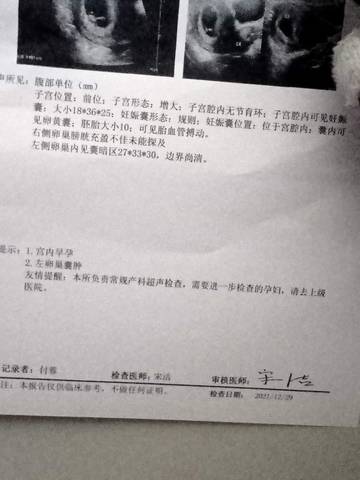 声所见：腹部单位（mm）
子宫位置：前位；子宫形态：增大；子宫腔内无节育环；子宫腔内可见妊娠
囊：大小18*36*25；妊娠囊形态：规则；妊娠囊位置：位于宫腔内；囊内可
见卵黄囊；胚胎大小10；可见胎血管搏动。
右侧卵巢膀胱充盈不佳未能探及
左侧卵巢内见囊暗区27*33*30，边界尚清。
提示：1.宫内早孕
2.左卵巢囊肿
友情提醒：本所负责常规产科超声检查，需要进一步检查的孕妇，请去上级
医院。
记录者：付雅 检查医师：宋洁 审核医师：
注：本报告仅供临床参考，不做任何证明。 检查日期： 2021/12/29